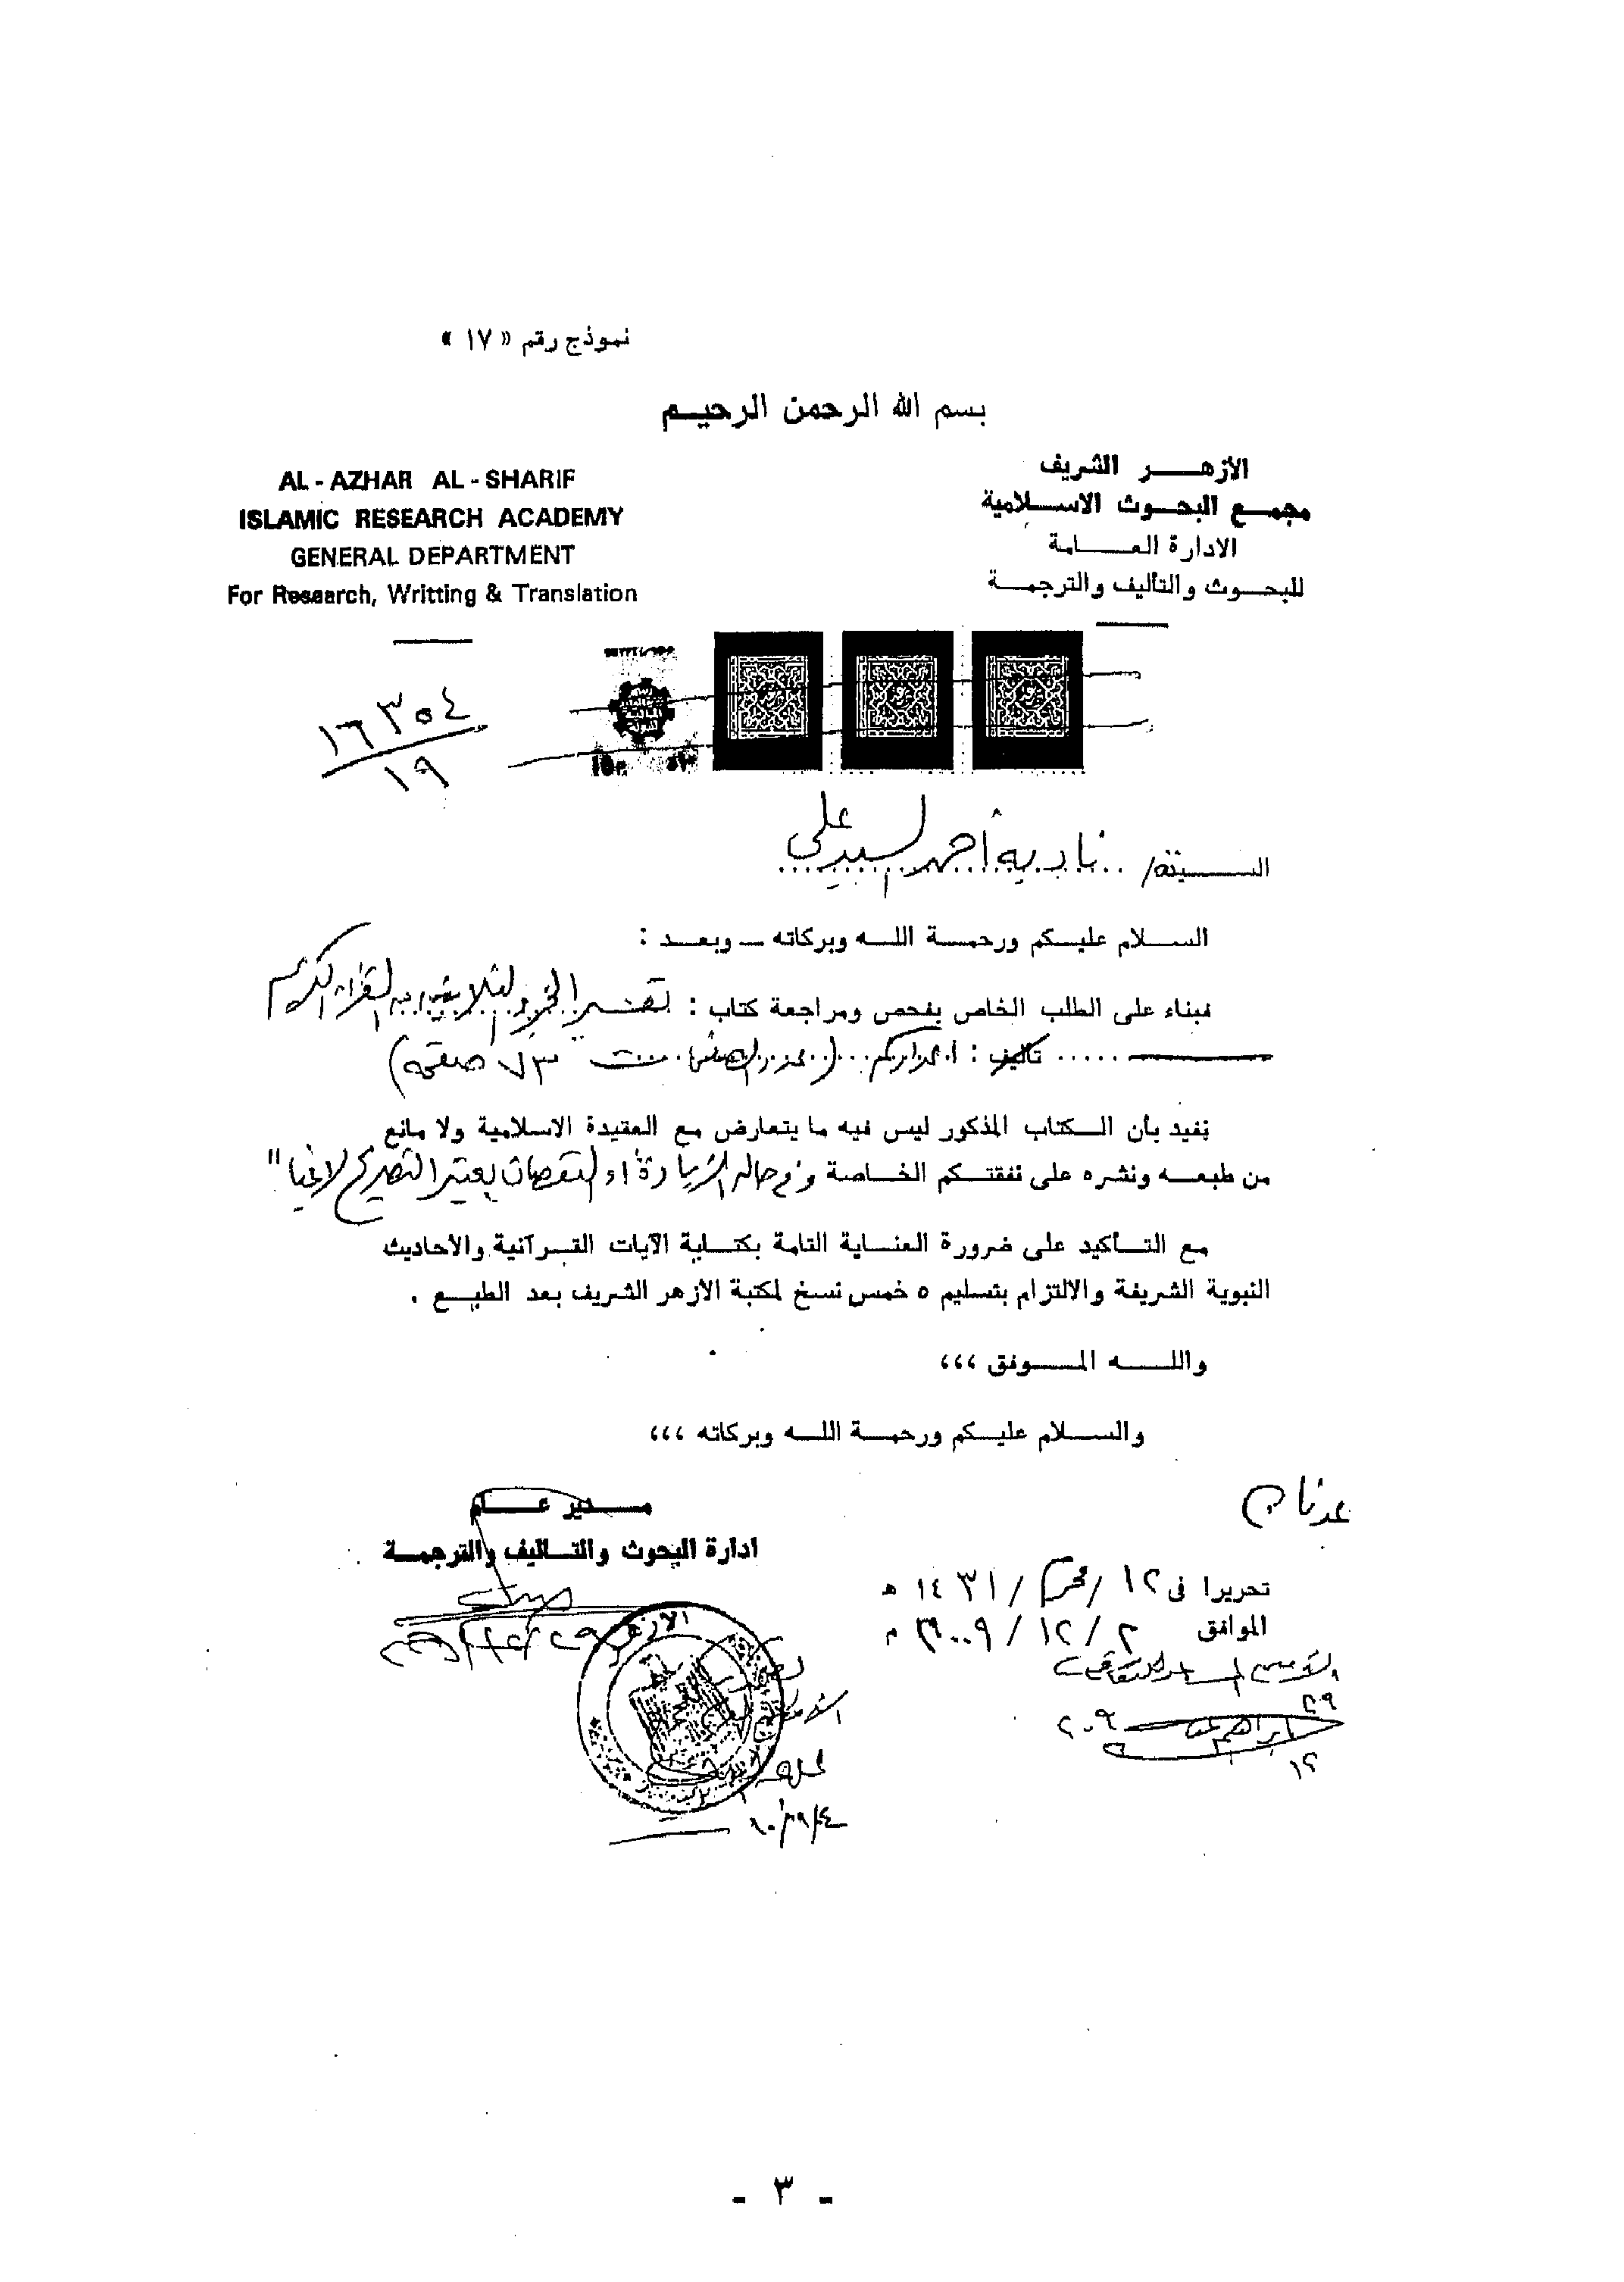 نموذج رقم « ١٧ »
بسم الله الرحمن الرحيم
الأزهر الشريف
مجمع البحوث الاسلامية
الادارة العامة
للبحوث والتأليف والترجمة
AL - AZHAR AL - SHARIF
ISLAMIC RESEARCH ACADEMY
GENERAL DEPARTMENT
For Research, Writting & Translation
١٦٣٥٤
١٩
السيدة/ نادية أحمد السيد على
السلام عليكم ورحمة الله وبركاته ــ وبعد :
فبناء على الطلب الخاص بفحص ومراجعة كتاب : تفسير الجزء الثلاثين من القرآن الكريم
تأليف : صفحة)
نفيد بأن الكتاب المذكور ليس فيه ما يتعارض مع العقيدة الاسلامية ولا مانع
من طبعه ونشره على نفقتكم الخاصة وفى حالة الزيادة أو النقصان يعتبر التصريح لاغيا"
مع التأكيد على ضرورة العناية التامة بكتابة الآيات القرآنية والأحاديث
النبوية الشريفة والالتزام بتسليم ٥ خمس نسخ لمكتبة الأزهر الشريف بعد الطبع .
والله الموفق ،،،
والسلام عليكم ورحمة الله وبركاته ،،،
عدنان
مدير عام
ادارة البحوث والتأليف والترجمة
تحريرا فى ١٢ / محرم / ١٤٣١ ه
الموافق / ١٢ / ٢٠٠٩ م
- ٣ -